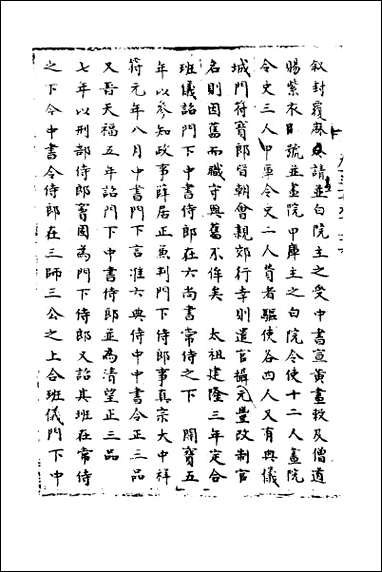 叙封覆麻表請並白院主之受中書宣黃畫敕及僧道
賜紫衣師號並畫院甲庫主之白院令使十二人畫院
令史三人甲庫令史二人贊者驅使各四人又有典儀
城門符寶郎皆朝會親郊行幸則遣官攝元豐改制官
名則因舊而職守與舊不侔矣 太祖建隆三年定合
班儀詔門下中書侍郎在六尚書常侍之下 開寶五
年以參知政事薛居正兼判門下侍郎事真宗大中祥
符元年八月中書門下言准六典侍中中書令正二品
又晉天福五年詔門下中書侍郎並為清望正三品
七年以刑部侍郎竇固為門下侍郎又詔其班在常侍
之下今中書令侍郎在三師三公之上合班儀門下中